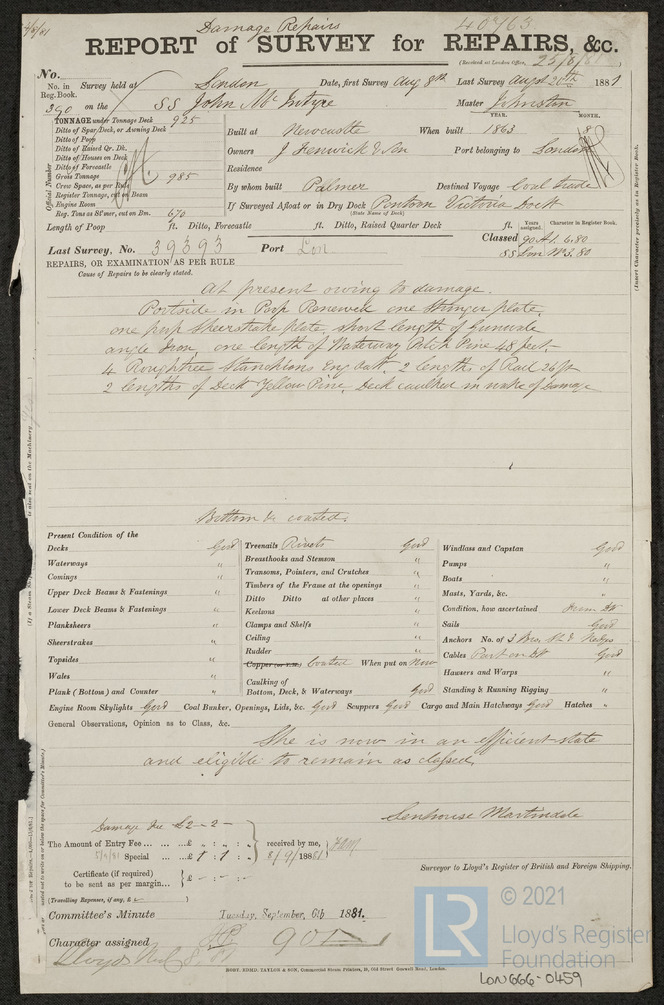 Damage Repairs
40763
REPORT of SURVEY for REPAIRS, &c.
(Received at London Office,
No.
No. in Reg. Book. Survey held at London Date, first Survey Aug 8th Last Survey August 20th 1881
390 on the SS John McIntyre Master Johnston
TONNAGE under Tonnage Deck 925
Ditto of Spar Deck, or Awning Deck
Ditto of Poop
Ditto of Raised Qr. Dk.
Ditto of Houses on Deck
Ditto of Forecastle
Gross Tonnage 985
Crew Space, as per Rule
Register Tonnage, cut on Beam
Engine Room
Reg. Tons as St'mer, cut on Bm. 670
Official Number
YEAR. MONTH.
Built at Newcastle When built 1863 8
Owners J Fenwick & Son Port belonging to London
Residence
By whom built Palmer Destined Voyage Coal trade
If Surveyed Afloat or in Dry Dock Pontoon Victoria Dock
(State Name of Dock)
Length of Poop ft. Ditto, Forecastle ft. Ditto, Raised Quarter Deck ft.
Years assigned. Character in Register Book.
Last Survey, No. 39393 Port Lon
Classed 90 A1. 6.80
SS Lon No3.80
REPAIRS, OR EXAMINATION AS PER RULE
Cause of Repairs to be clearly stated.
At present owing to damage.
Portside in Poop Renewed one Stringer plate,
one poop Sheerstrake plate, short length of Gunwale
angle Iron, one length of Waterway Pitch Pine 48 feet.-
4 Roughtree Stanchions Eng Oak. 2 lengths of Rail 26 ft
2 lengths of Deck Yellow Pine, Deck caulked in wake of damage
Bottom & coated.
Present Condition of the
Decks Good
Waterways "
Comings "
Upper Deck Beams & Fastenings "
Lower Deck Beams & Fastenings "
Planksheers "
Sheerstrakes "
Topsides "
Wales "
Plank (Bottom) and Counter "
Treenails Rivets Good
Breasthooks and Stemson "
Transoms, Pointers, and Crutches "
Timbers of the Frame at the openings "
Ditto Ditto at other places "
Keelsons "
Clamps and Shelfs "
Ceiling "
Rudder "
Copper (or Y.M.) Coated When put on Now
Caulking of
Bottom, Deck, & Waterways Good
Windlass and Capstan Good
Pumps "
Boats "
Masts, Yards, &c. "
Condition, how ascertained
Sails Good
Anchors No. of 3
Cables Part on Good
Hawsers and Warps "
Standing & Running Rigging "
Engine Room Skylights Good Coal Bunker, Openings, Lids, &c. Good Scuppers Good Cargo and Main Hatchways Good Hatches "
General Observations, Opinion as to Class, &c.
She is now in an efficient state
and eligible to remain as classed
Damage Fee £2-2-
Senhouse Martindale
The Amount of Entry Fee ... £ " : " : " received by me,
Special ... £ 1 : 1 : 8/9/1881
Surveyor to Lloyd's Register of British and Foreign Shipping.
Certificate (if required)
to be sent as per margin... £
(Travelling Expenses, if any, £
Committee's Minute Tuesday, September, 6th 1881.
Character assigned 90A1
ROBT. EDMD. TAYLOR & SON, Commercial Steam Printers, 19, Old Street Goswell Road, London.
(Insert Character precisely as in Register Book.
LR
© 2021
Lloyd's Register
Foundation
LON666-0459